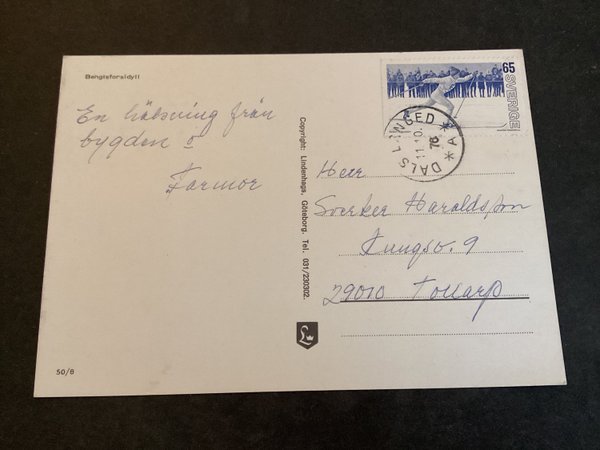 Bengtsforsidyll
65
SVERIGE
DALS LÅNGED * A *
En hälsning från
bygden o
Farmor
Copyright: Lindenhags, Göteborg. Tel. 031/230302.
Herr
Sverker Haraldsson
Kungsv. 9
29010 Tollarp
50/8